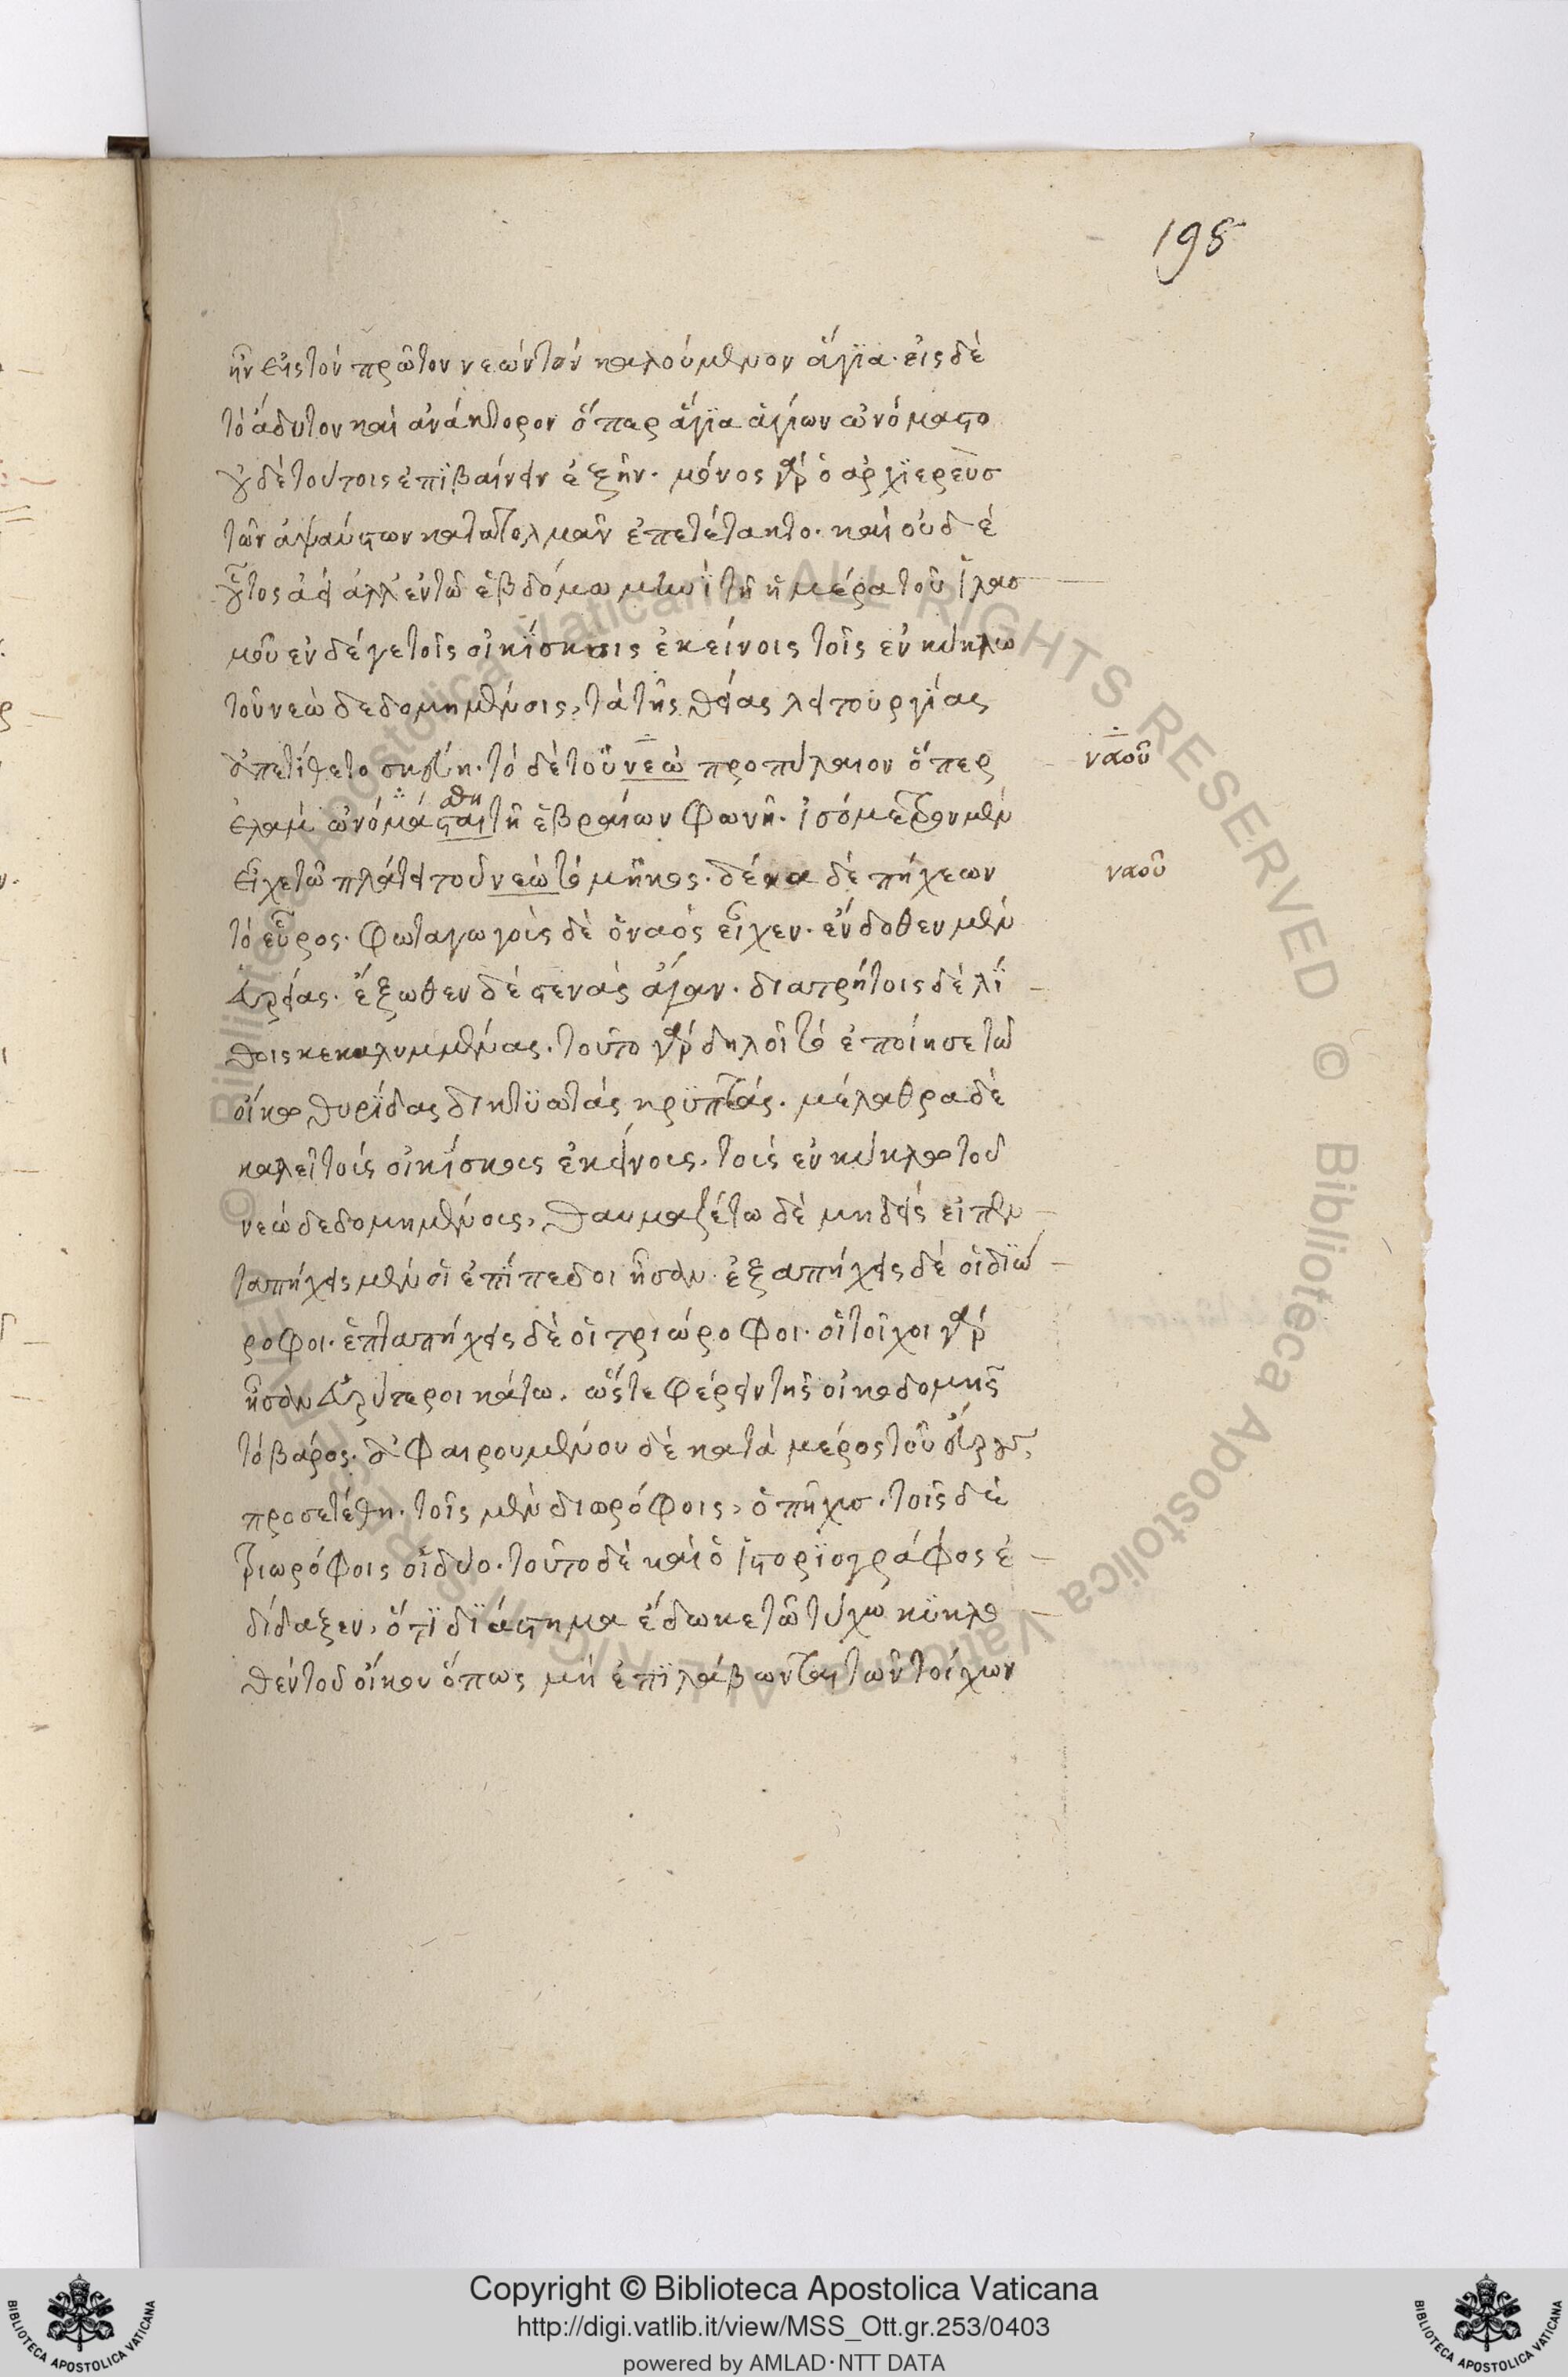 198
ἦν εἰς τὸν πρῶτον νεὼν τὸν καλούμενον ἅγϊα· εἰς δὲ
τὸ ἄδυτον καὶ ἀνάκτορον ὅπερ ἅγϊα ἁγίων ὠνόμαστο
οὐδὲ τούτοις ἐπϊβαίνειν ἐξῆν· μόνος γὰρ ὁ ἀρχϊερεὺσ
τῶν ἀψαύστων κατατολμᾶν ἐπετέτακτο· καὶ οὐδὲ
οὗτος ἀεὶ ἀλλ' ἐν τῶ ἑβδόμω μηνῒ τῆ ἡμέρα τοῦ ἱλασ
μοῦ ἐν δέ γε τοῖς οἰκΐσκοις ἐκείνοις τοῖς ἐν κύκλω
τοῦ νεὼ δεδομημένοις, τὰ τῆς θείας λειτουργίας
ἀπετίθετο σκεύη· τὸ δὲ τοῦ νεὼ προπύλαιον ὅπερ
ναοῦ
ἐλαμ ὠνόμασται τῆ ἑβραίων φωνῆ· ἰσόμετρον μὲν
σθη
εἶχε τῶ πλάτει τοῦ νεὼ τὸ μῆκος· δέκα δὲ πήχεων
ναοῦ
τὸ εὖρος· φωταγωγοὺς δὲ ὁ ναὸς εἶχεν· ἔνδοθεν μὲν
εὐρείας· ἔξωθεν δὲ στενὰς ἄγαν· διατρήτοις δὲ λΐ
θοις κεκαλυμμένας· τοῦτο γὰρ δηλοῖ τὸ ἐποίησε τῶ
οἴκω θυρΐδας δικτϋωτὰς κρϋπτάς· μέλαθρα δὲ
καλεῖ τοὺς οἰκΐσκους ἐκείνους· τοὺς ἐν κύκλω τοῦ
νεὼ δεδομημένους, θαυμαζέτω δὲ μηδεὶς εἰ πεν
ταπήχεις μὲν οἱ ἐπΐπεδοι ἦσαν· ἑξαπήχεις δὲ οἱ διώ
ροφοι· ἑπταπήχεις δὲ οἱ τριώροφοι· οἱ τοῖχοι γὰρ
ἦσαν εὐρύτεροι κάτω· ὥστε φέρειν τῆς οἰκοδομῆς
τὸ βάρος· ὑφαιρουμένου δὲ κατὰ μέρος τοῦ εὔρους,
προσετέθη· τοῖς μὲν διωρόφοις, ὁ πῆχυσ· τοῖς δὲ
τριωρόφοις οἱ δύο· τοῦτο δὲ καὶ ὁ ἱστορϊογράφος ἐ
δίδαξεν, ὅτϊ δϊάστημα ἔδωκε τῶ τύχω κϋκλό
θεν τοῦ οἴκου ὅπως μὴ ἐπϊλάβωνται τῶν τοίχων
Copyright © Biblioteca Apostolica Vaticana
http://digi.vatlib.it/view/MSS_Ott.gr.253/0403
powered by AMLAD·NTT DATA
BIBLIOTECA APOSTOLICA VATICANA
BIBLIOTECA APOSTOLICA VATICANA
© Biblioteca Apostolica Vaticana ALL RIGHTS RESERVED © Biblioteca Apostolica Vaticana ALL RIGHTS RESERVED